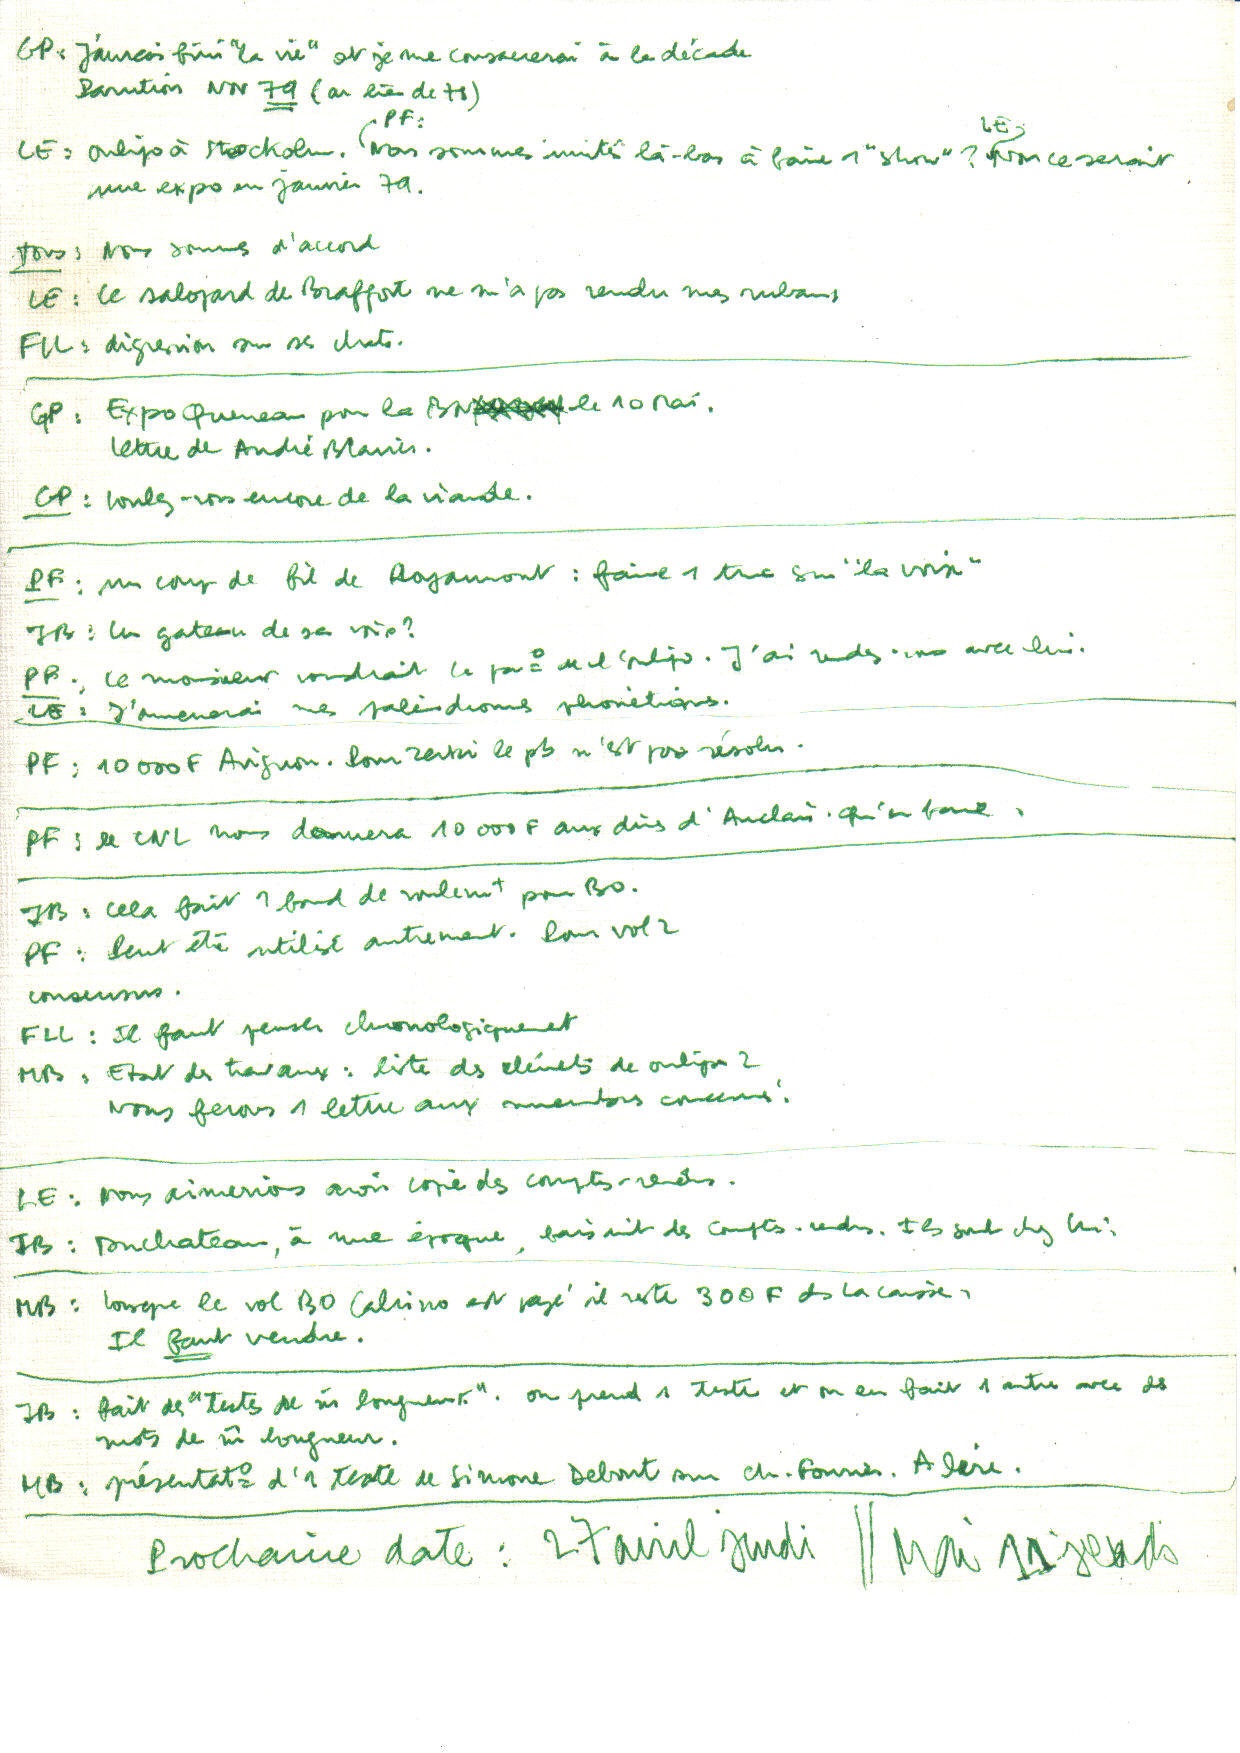 GP : J'aurais fini "la vie" et je me consacrerai à la décade
Parution NN 79 (au lieu de 78)
PF : LE
LE : oulipo à Stockolm. (Nous sommes invités là-bas à faire 1 "show" ? Non ce serait
une expo en janvier 79.
Tous : Nous sommes d'accord
LE : Ce salopard de Braffort ne m'a pas rendu mes rubans
FLL : digression sur ses chats.
GP : Expo Queneau pour la BN le 10 Mai.
lettre de André Blavier.
GP : voulez-vous encore de la viande.
PF : un coup de fil de Royaumont : faire 1 truc sur "la voix"
JB : Un gateau de sa voix ?
PF : Ce monsieur voudrait de l'oulipo. J'ai rendez-vous avec lui.
LE : J'amenerai mes palindromes phonétiques.
PF : 10 000 F Avignon. Pour le pb n'est pas résolu.
PF : le CNL nous donnera 10 000 F aux dires d'Auclair. qu'en faire.
JB : Cela fait 1 fond de roulemt pour BO.
PF : Peut être utilisé autrement. Pour vol 2
consensus.
FLL : Il faut penser chronologiquement
MB : Etat des travaux : liste des eléments de oulipo 2
Nous ferons 1 lettre aux membres concernés.
LE : Nous aimerions avoir copie des comptes-rendus.
JB : Duchateau, à une époque, faisait des comptes-rendus. Ils sont chez lui.
MB : lorsque le vol BO Calvino est payé il reste 300 F ds la caisse.
Il faut vendre.
JB : fait des "textes de m̄ longueur". on prend 1 texte et on en fait 1 autre avec des
mots de m̄ longueur.
MB : présentat° d'1 texte de Simone Debout sur Ch. Fourier. A lire.
Prochaine date : 27 avril jeudi || Mai 11 jeudi